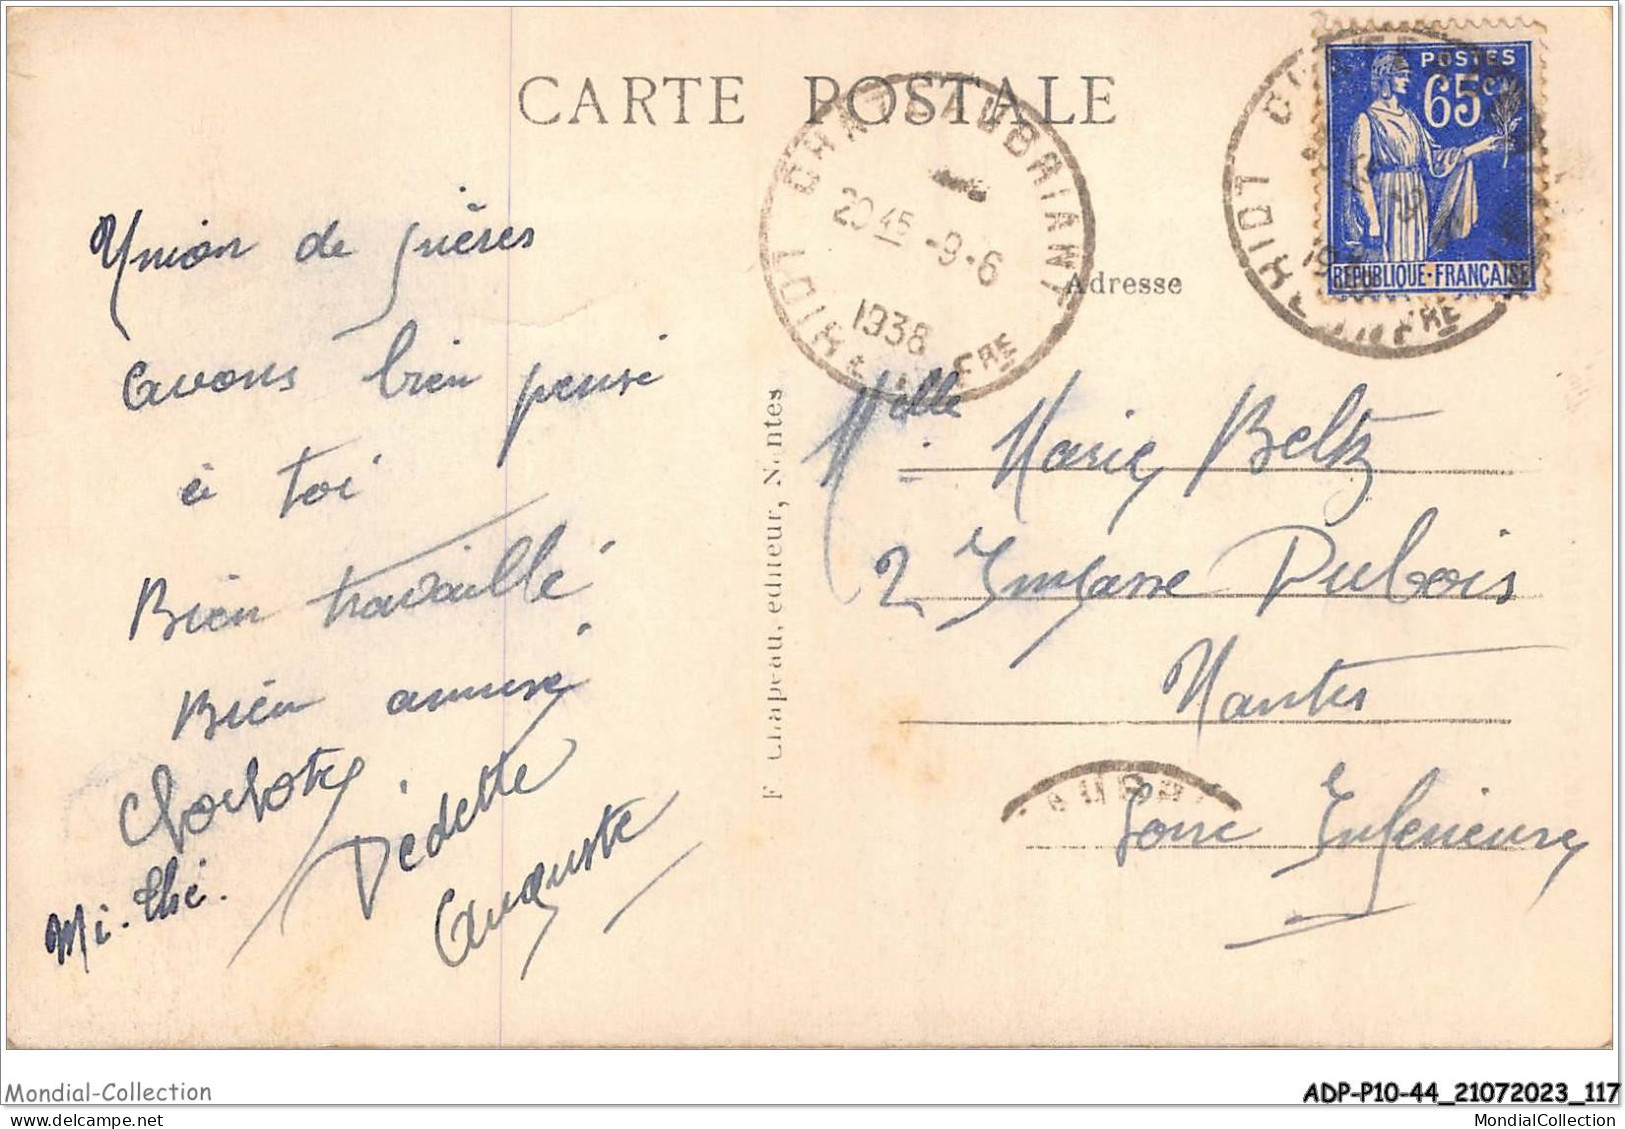 CARTE POSTALE
POSTES
65c
REPUBLIQUE-FRANÇAISE
CHATEAUBRIANT
20 45 -9-6
1938
LOIRE INFRE
Adresse
Union de prières
avons bien pensé
à toi
Bien travaillé
Bien amusé
Charlotte
Dédette
Mi-thé.
Auguste
F. Chapeau, éditeur, Nantes
Melle Marie Beltz
2 Impasse Dubois
Nantes
Loire Inférieure
Mondial-Collection
ADP-P10-44_21072023_117
Mondial-Collection
MondialCollection